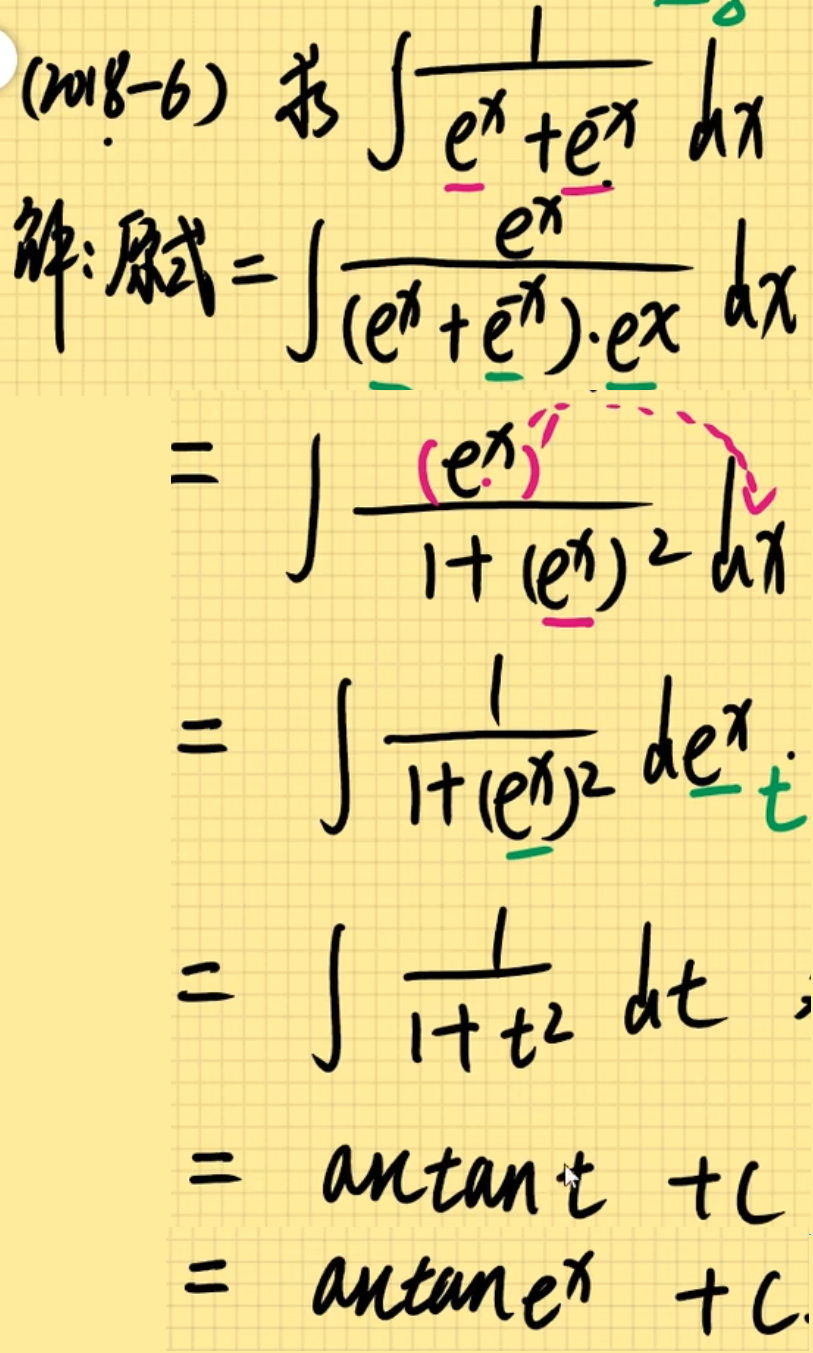 (2018-6) 求 ∫ 1/(eˣ + e⁻ˣ) dx
解: 原式 = ∫ eˣ/((eˣ + e⁻ˣ)·eˣ) dx
= ∫ (eˣ)/(1 + (eˣ)²) dx
= ∫ 1/(1 + (eˣ)²) deˣ. t
= ∫ 1/(1 + t²) dt
= arctan t + C
= arctan eˣ + C.